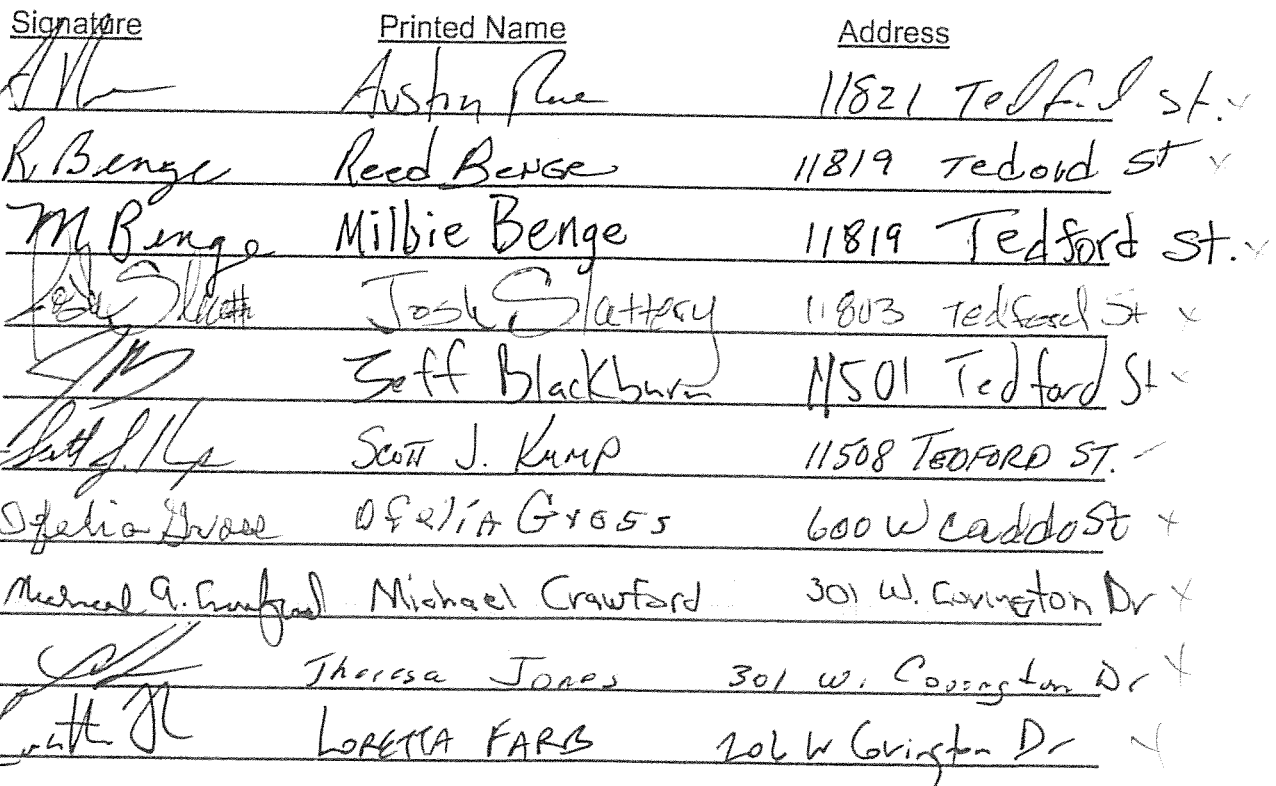 Signature Printed Name Address
Austin 11821 Tedford St.
R. Benge Reed Benge 11819 Tedord St
M Benge Milbie Benge 11819 Tedford St.
Josh Slatt Josh Slattery 11803 Tedford St
Jeff Blackburn 11501 Tedford St
Scott J. Kump 11508 TEDFORD ST.
Ofelia Gross Ofelia Gross 600 W Caddo St
Michael A. Crawford Michael Crawford 301 W. Covington Dr
Theresa Jones 301 W. Covington Dr
LORETTA FARB W Covington Dr